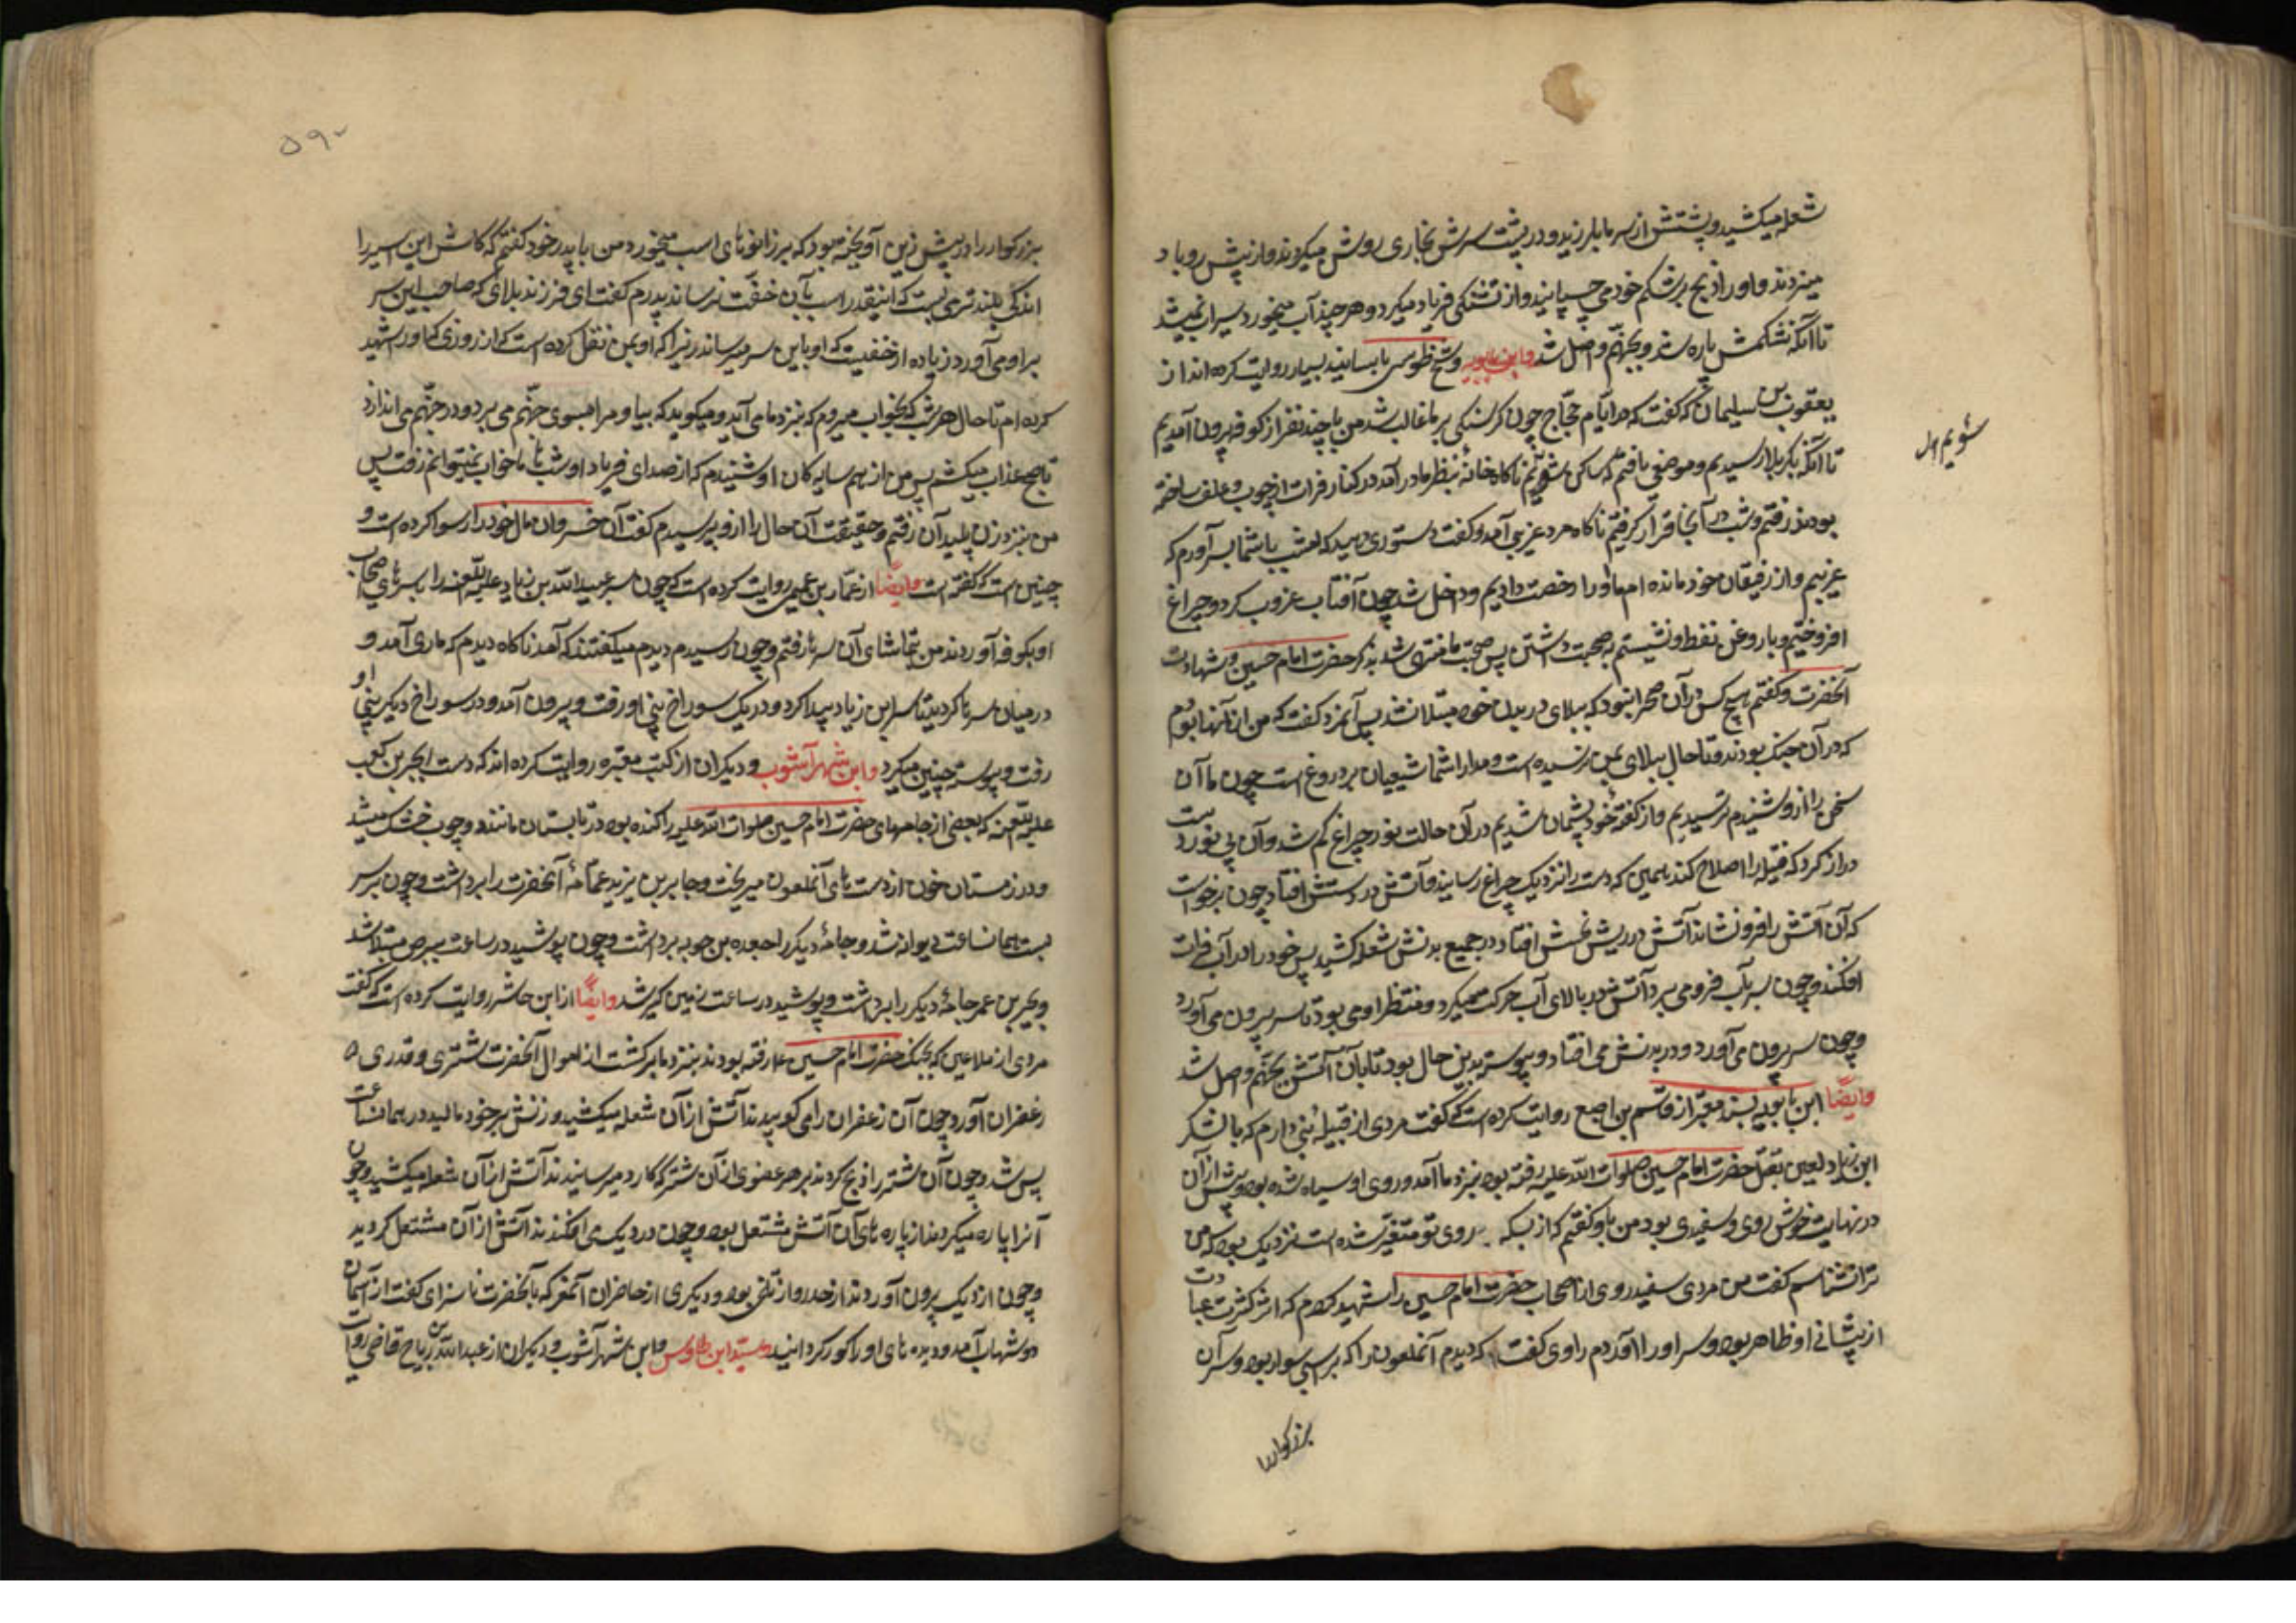 شعله میکشید و پشتش از سرما میلرزید و در پشت سرش بخاری روشن میکردند و از پیش رو باد
میزدند و او را از یخ بر شکم خود می چسپانید و از تشنگی فریاد میکرد و هر چند آب میخورد سیراب نمیشد
تا آنکه شکمش پاره شد و بجهنم واصل شد و ابن بابویه و شیخ طوسی باسانید بسیار روایت کرده اند از
یعقوب بن سلیمان که گفت که در ایام حجاج چون گرسنگی بر ما غالب شد من با چند نفر از کوفه بیرون آمدیم
تا آنکه بکربلا رسیدیم و موضعی نیافتیم که ساکن شویم ناگاه خانهٔ بنظر ما در آمد در کنار فرات از چوب و علف ساخته
شویم
بودند رفتیم و شب در آنجا قرار گرفتیم ناگاه مرد غریبی آمد و گفت دستوری دهید که امشب با شما بسر آورم که
غریبم و از رفیقان خود مانده ام ما او را رخصت دادیم و داخل شد چون آفتاب غروب کرد و چراغ
افروختیم و با روغن نفط و نشستیم به صحبت داشتن پس صحبت ما منتهی شد بذکر حضرت امام حسین و شهادت
آنحضرت و گفتیم هیچ کس در آن صحرا نبود که ببلای در بدن خود مبتلا نشد پس آنمرد گفت که من از آنها بودم
که در آن جنک بودند و تا حال ببلای بمن نرسیده است و مدار شما شیعیان بر دروغ است چون ما آن
سخن را از او شنیدیم ترسیدیم و از گفتهٔ خود پشیمان شدیم در آن حالت نور چراغ کم شد و آن بی نور دست
دراز کرد که فتیله را اصلاح کند همین که دست را نزدیک چراغ رسانید آتش در دستش افتاد چون برخواست
که آن آتش را فرو نشاند آتش در ریش نحسش افتاد و در جمیع بدنش شعله کشید پس خود را در آب فرات
افکند و چون سر بآب فرو می برد آتش در بالای آب حرکت میکرد و منتظر او می بود تا سر بیرون می آورد
و چون سر بیرون می آورد و در بدنش می افتاد و پیوسته بدین حال بود تا بآن آتش بجهنم واصل شد
و ایضًا ابن بابویه بسند معتبر از قاسم بن اصبغ روایت کرده است که گفت مردی از قبیلهٔ بنی دارم که با لشکر
ابن زیاد لعین بقتل حضرت امام حسین صلوات الله علیه رفته بود بنزد ما آمد و روی او سیاه شده بود و پیش از آن
در نهایت خوش روی و سفیدی بود من باو گفتم که از بسکه روی تو متغیر شده است نزدیک بود که من
ترا نشناسم گفت من مردی سفید روی از اصحاب حضرت امام حسین را شهید کردم که اثر کثرت عبادت
از پیشانی او ظاهر بود و سر او را آوردم راوی گفت که دیدم آنملعون را که بر اسبی سوار بود و سر آن
بزرگوار را
۵۹۰
بزرگوار را در پیش زین آویخته بود که بر زانوهای اسب میخورد من با پدر خود گفتم که کاش این سر را
اندکی بلندتر می بست که اینقدر اسب بآن خفت نرساند پدرم گفت ای فرزند بلای که صاحب این سر
بر او می آورد زیاده از خفتیست که او باین سر میرساند زیرا که او بمن نقل کرده است که از روزی که او را شهید
کرده ام تا حال هر شب که بخواب میروم که بنزد ما می آید و میگوید که بیا و مرا بسوی جهنم می برد و در جهنم می اندازد
تا صبح عذاب میکشم پس من از همسایه گان او شنیدم که از صدای فریاد او شبها ما خواب نمیتوانم رفت پس
من بنزد زن پلید آن رفتم و حقیقت آن حال را از و پرسیدم گفت آن خسران مال خود را رسوا کرده است و
چنین است که گفته است و ایضًا از عمار بن عمیر روایت کرده است که چون سر عبید الله بن زیاد علیه اللعنه را با سرهای اصحاب
او بکوفه آوردند من بتماشای آن سرها رفتم و چون رسیدم دیدم میگفتند که آمد ناگاه دیدم که ماری آمد و
در میان سرها گردید تا سر ابن زیاد پیدا کرد و در یک سوراخ بینی او رفت و بیرون آمد و در سوراخ دیگر بینی او
رفت و پیوسته چنین میکرد و ابن شهر آشوب و دیگران از کتب معتبره روایت کرده اند که دست ابجر بن کعب
علیه اللعنه که بعضی از جامهای حضرت امام حسین صلوات الله علیه را کنده بود در تابستان مانند دو چوب خشک میشد
و در زمستان خون از دست های آنملعون میریخت و جابر بن یزید عمامهٔ آنحضرت را برداشت و چون بر سر
بست همانساعت دیوانه شد و جامهٔ دیگر را جعده بن حوبه برداشت و چون پوشید در ساعت ببرص مبتلا شد
و بحیر بن عمر جامهٔ دیگر را برداشت و پوشید در ساعت زمین گیر شد و ایضًا از ابن حاشر روایت کرده است که گفت
مردی از ملاعین که بجنک حضرت امام حسین رفته بودند بنزد ما برگشت از اموال آنحضرت شتری و قدری
زعفران آورد چون آن زعفران را می کوبیدند آتش از آن شعله میکشید و زنش بر خود مالید در همانساعت
پیس شد و چون آن شتر را ذبح کردند بر هر عضوی از آن شتر که کارد میرسانیدند آتش از آن شعله میکشید و چون
آنرا پاره میکردند از پاره های آن آتش مشتعل بود و چون در دیک می افکندند آتش از آن مشتعل گردید
و چون از دیک بیرون آوردند از خدرو از تلخی بود و دیگری از حاضران آنمعرکه بآنحضرت ناسزای گفت از آسمان
دو شهاب آمد و دیده های او را کور گردانید و سید ابن طاوس و ابن شهر آشوب و دیگران از عبدالله بن ریاح قاضی روایت